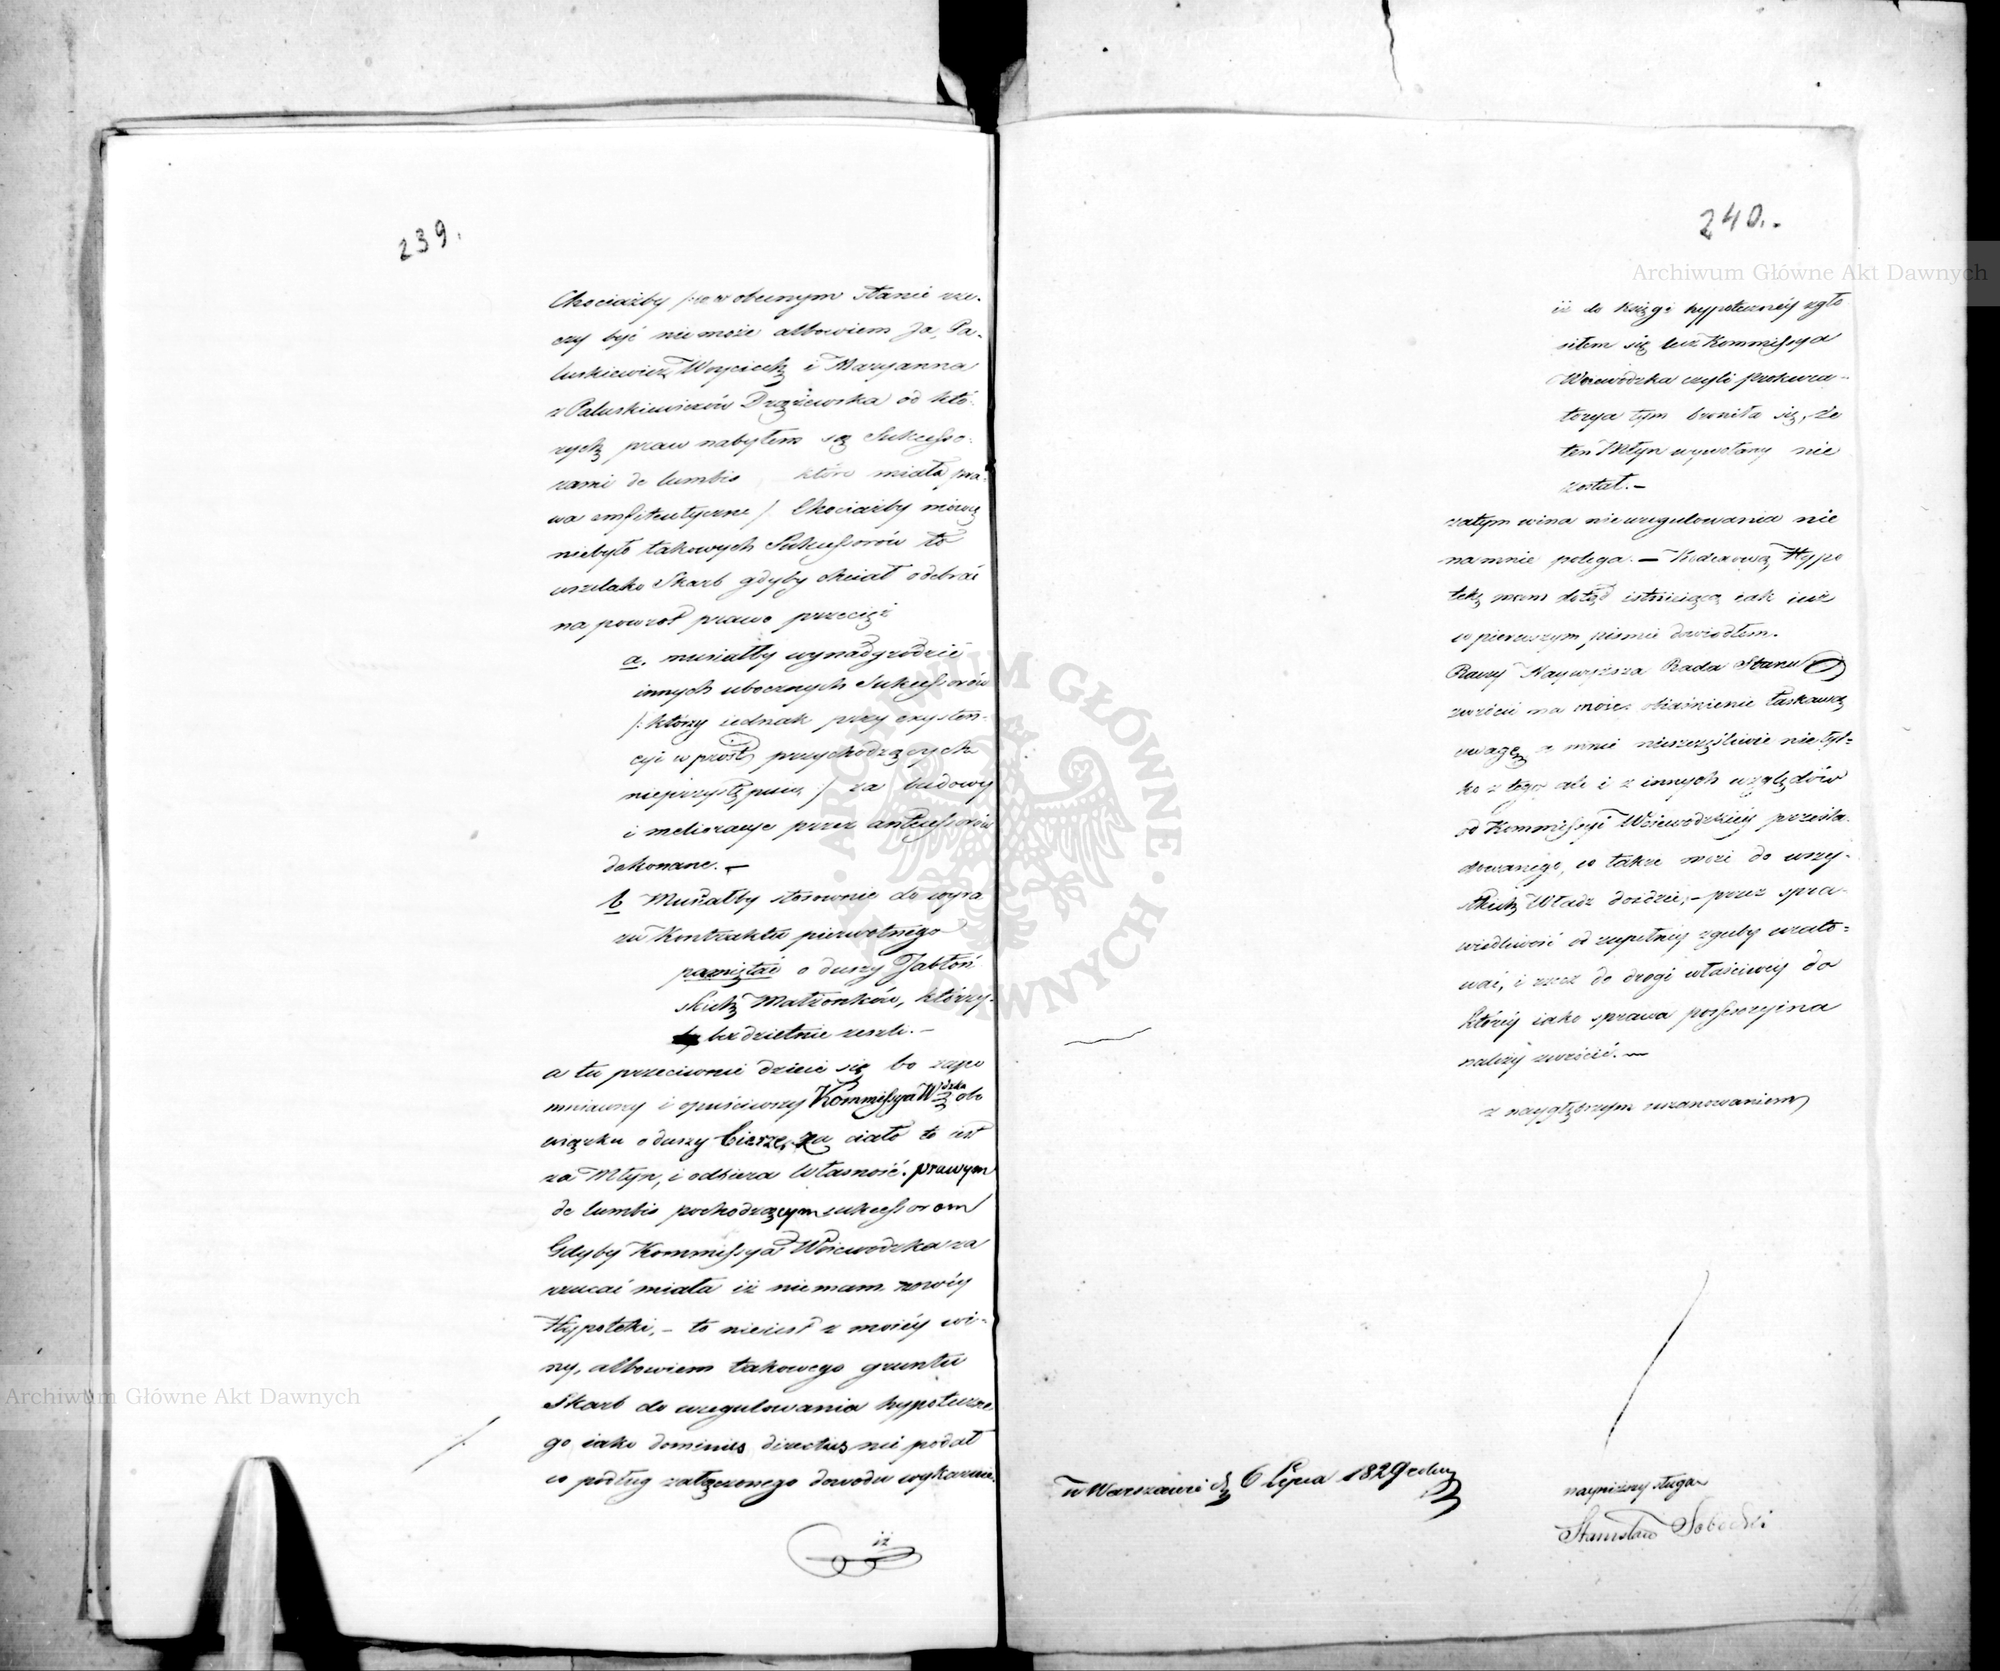 239.
Chociażby /: co w obecnym stanie rze-
czy być nie może albowiem Ja, Pa-
luskiewicz Woyciech i Maryanna
z Paluskiewiczów Drążewska od któ-
rych praw nabyłem są Sukcesso-
rami de lumbis które miały pra-
wa emfiteutyczne / Chociażby mówię
niebyło takowych Sukcessorów to
wszelako Skarb gdyby chciał odebrać
na powrót prawo przecież
a. musiałby wynadgrodzić
innych ubocznych Sukcessorów
/: którzy iednak przy exysten-
cyi w prost przychodzących
nieprzystępuią / za budowy
i melioracye przez antecessorów
dokonane. —
b Musiałby stosownie do wyra
zu Kontraktu pierwotnego
pamiętać o duszy Jabłoń
skich Małżonków, którzy
bezdzietnie zeszli. —
a tu przeciwnie dzieie się bo zapo
mniawszy i opuściwszy Kommissya Wdzka obo
wiązku o duszy bierze za ciało to iest
za Młyn, i odbiera własność prawym
de lumbis pochodzącym sukcessorom
Gdyby Kommissya Woiewodzka za
rzucać miała iż niemam nowéy
Hypoteki, — to nieiest z moiéy wi-
ny, albowiem takowego gruntu
Skarb do uregulowania hypoteczne
go iako dominus directus nie podał
co podług załączonego dowodu wykazuie
iż
240.
iż do księgi hypotecznéy zgło
siłem się lecz Kommissya
Woiewodzka czyli prokura-
torya tym broniła się, że
ten Młyn wywołany nie
został. —
zatym wina nieuregulowania nie
na mnie polega. — Kodexową Hypo
tekę mam dotąd istnieiącą iak iuż
w pierwszym piśmie dowiodłem.
Raczy Naywyższa Rada Stanu
zwrócić na moie obiaśnienie łaskawą
uwagę a mnie nieszczęśliwie nie tyl-
ko z tego ale i z innych względów
od Kommissyi Woiewodzkiéy prześla-
dowanego, co także może do wszy-
stkich Władz doydzie, — przez spra-
wiedliwość od zupełnéy zguby urato-
wać, i rzecz do drogi właściwéy do
któréy iako sprawa possessoryina
należy zwrócić. —
z naygłębszym uszanowaniem
w Warszawie d. 6 Lipca 1829 roku
nayniższy sługa
Stanisław Sobocki
Archiwum Główne Akt Dawnych
Archiwum Główne Akt Dawnych
· ARCHIWUM GŁÓWNE · AKT DAWNYCH